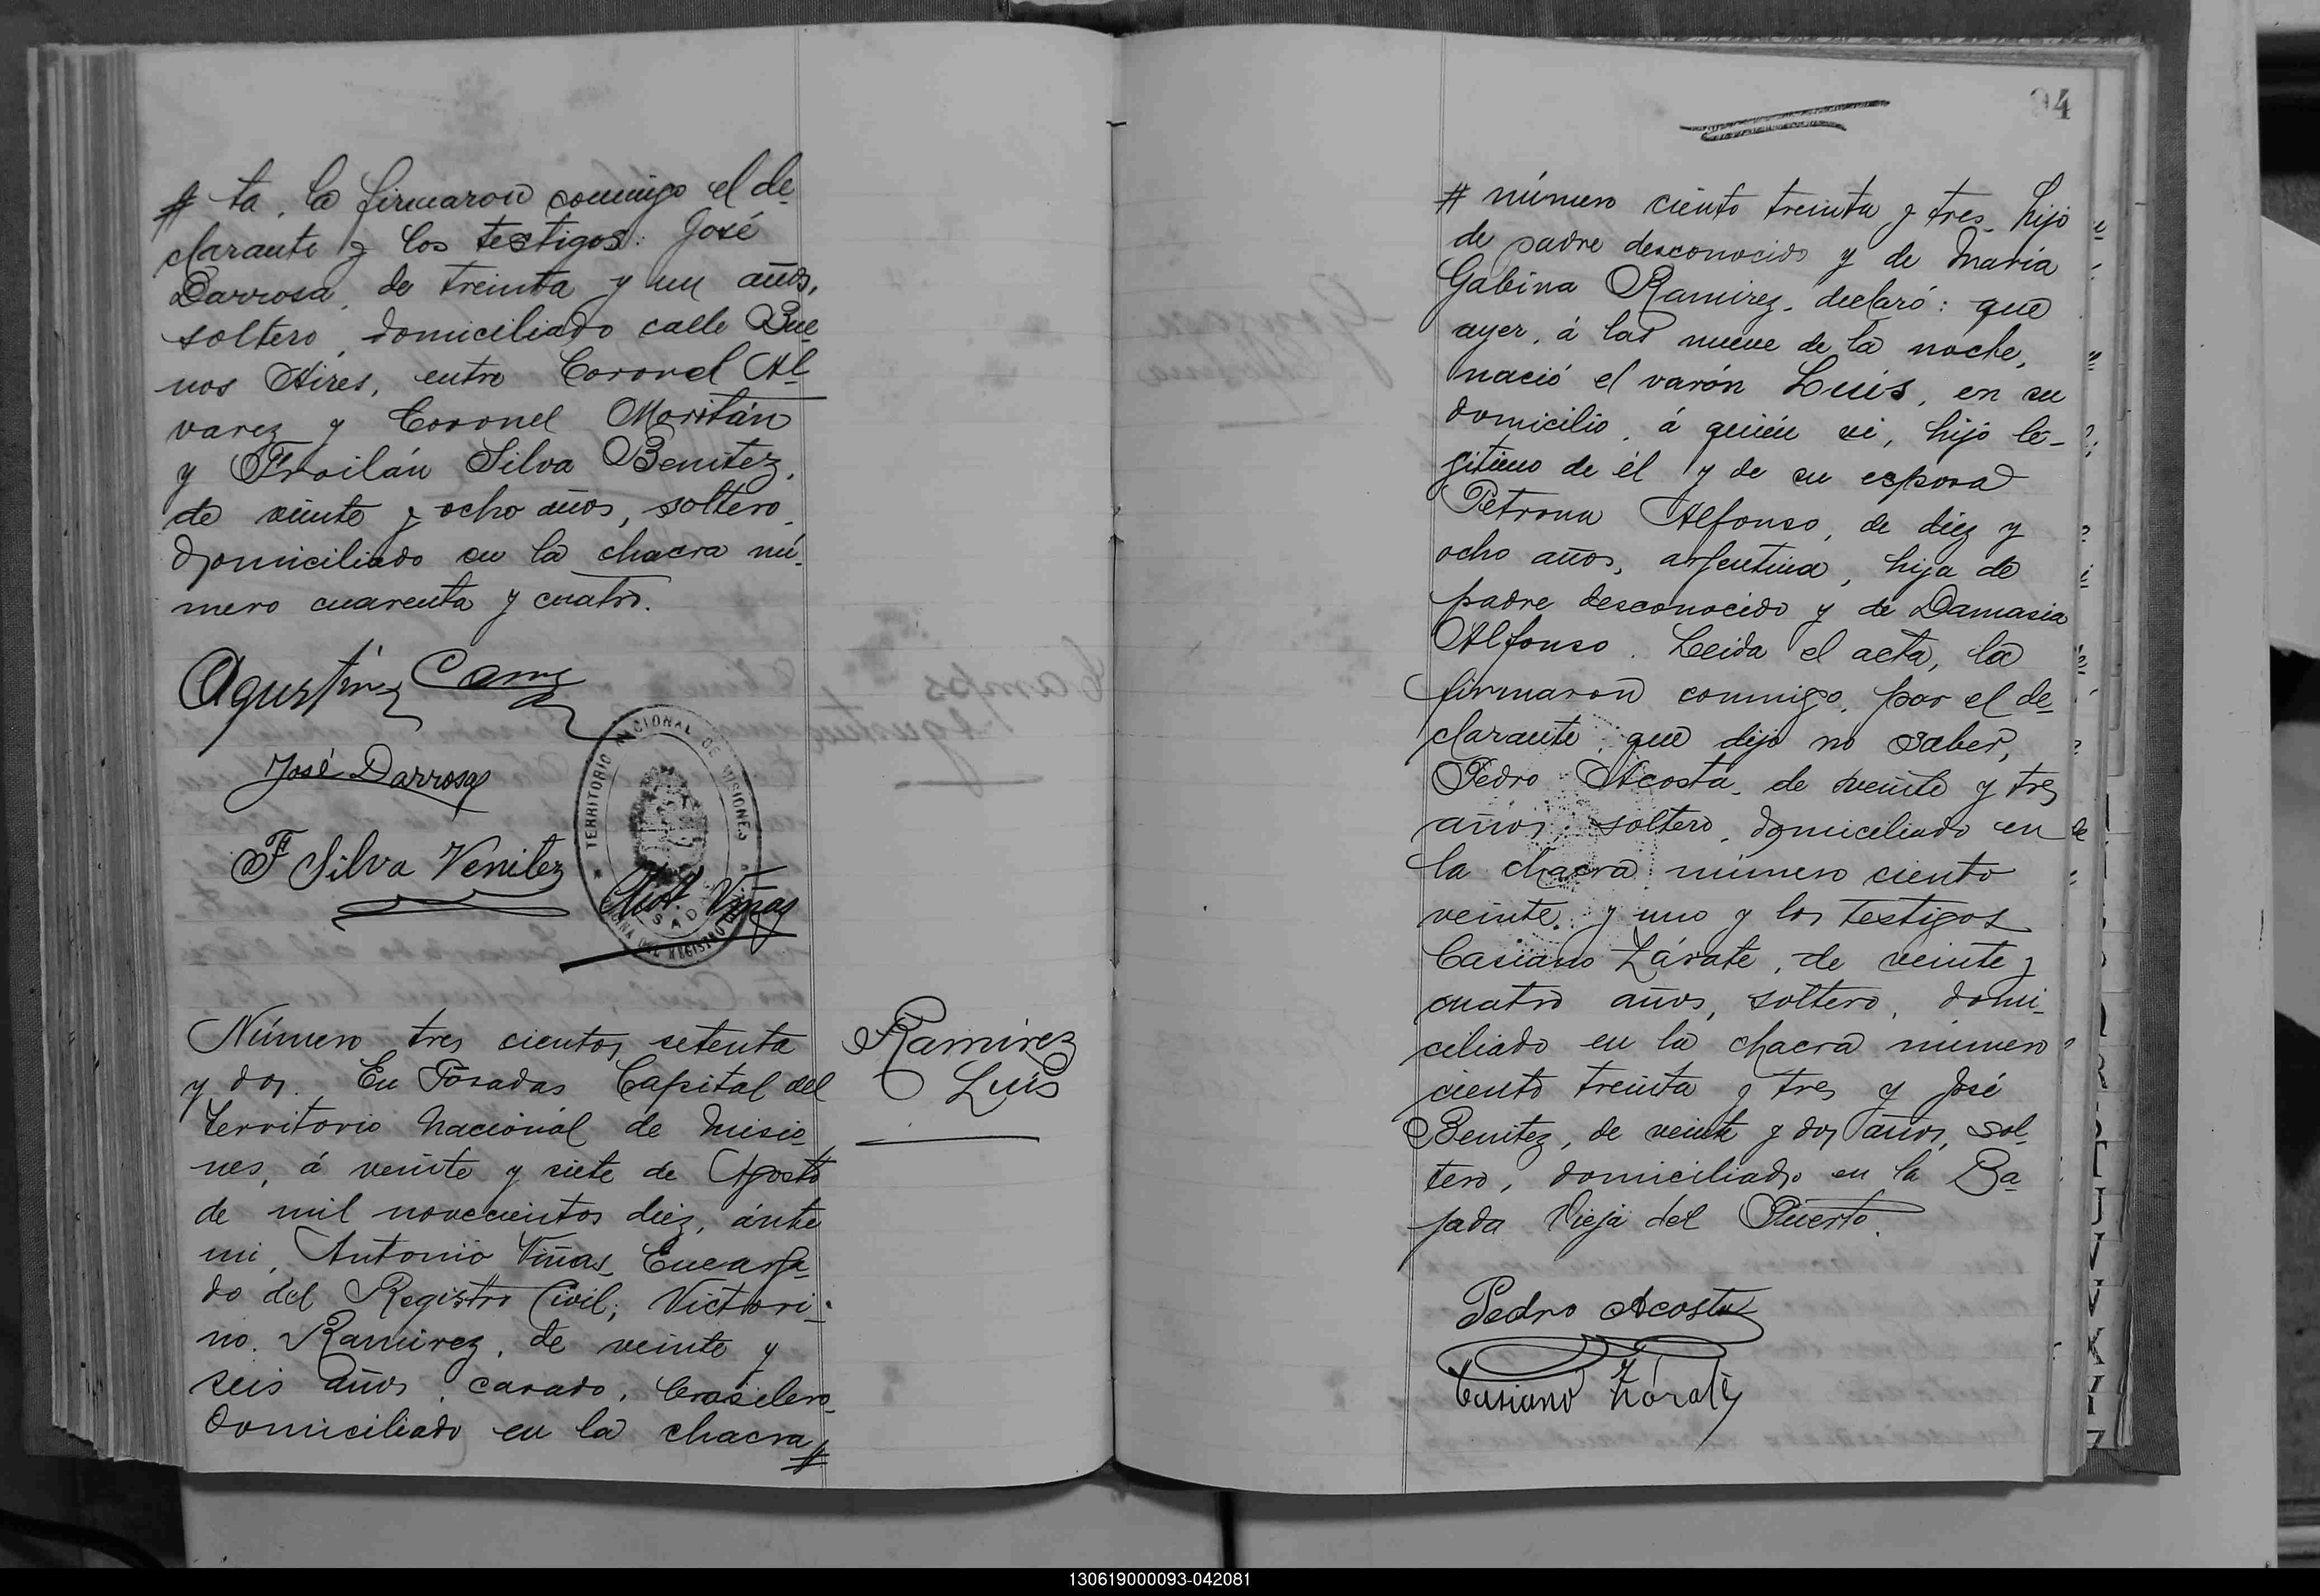 # ta, la firmaron conmigo el de-
clarante y los testigos: José
Darrosa, de treinta y un años,
soltero, domiciliado calle Bue-
nos Aires, entre Coronel Al-
varez y Coronel Moritán
y Froilán Silva Benitez,
de veinte y ocho años, soltero,
domiciliado en la chacra nú-
mero cuarenta y cuatro.
Agustín
José Darrosa
F Silva Venitez
TERRITORIO NACIONAL DE MISIONES
Ant. Viñas
Número tres cientos setenta
y dos. En Posadas Capital del
Territorio Nacional de Misio-
nes, á veinte y siete de Agosto
de mil novecientos diez, ánte
mi, Antonio Viñas, Encarga-
do del Registro Civil; Victori-
no Ramirez, de veinte y
seis años, casado, brasilero,
domiciliado en la chacra #
Ramirez
Luis
94
# número ciento treinta y tres, hijo
de padre desconocido y de María
Gabina Ramirez, declaró: que
ayer, á las nueve de la noche,
nació el varón Luis, en su
domicilio, á quién vi, hijo le-
gitimo de él y de su esposa
Petrona Alfonso, de diez y
ocho años, argentina, hija de
padre desconocido y de Damasia
Alfonso. Leida el acta, la
firmaron conmigo, por el de-
clarante, que dijo no saber,
Pedro Acosta, de veinte y tres
años, soltero, domiciliado en
la chacra número ciento
veinte y uno y los testigos
Casiano Zárate, de veinte y
cuatro años, soltero, domi-
ciliado en la chacra número
ciento treinta y tres y José
Benitez, de veinte y dos años, sol-
tero, domiciliado en la Ba-
jada Vieja del Puerto.
Pedro Acosta
Casiano Zárate
130619000093-042081